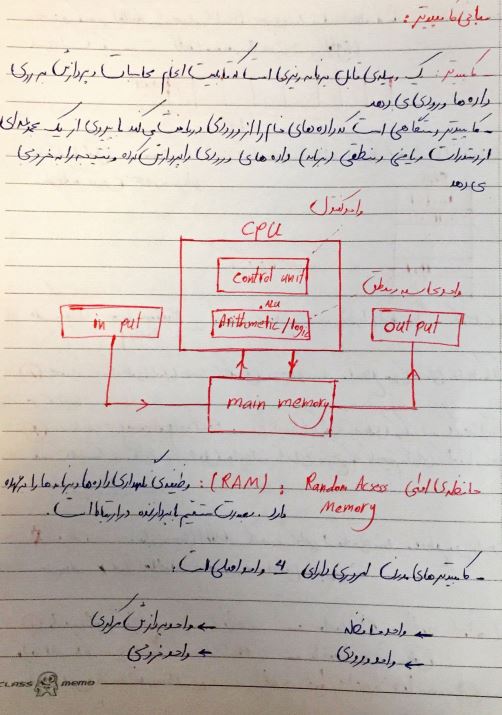 مبانی کامپیوتر:
- کامپیوتر: یک وسیله‌ی قابل برنامه ریزی است که قابلیت انجام محاسبات و پردازش بر روی
داده ها ورودی می دهد
- کامپیوتر دستگاهی است که داده های خام را از ورودی دریافت می کند با پیروی از یک مجموعه ای
از دستورات ریاضی و منطقی (برنامه) داده های ورودی را پردازش کرده و نتیجه را به خروجی
می دهد
واحد کنترل
CPU
control unit
واحد محاسبه و منطق
ALU
Arithmetic/logic
in put
output
main memory
حافظه ی اصلی Random Acsess Memory : (RAM) : وظیفه ی نگهداری داده ها و برنامه ها را به عهده
دارد. بصورت مستقیم با پردازنده در ارتباط است.
- کامپیوتر های مدرن امروزی دارای 4 واحد اصلی است:
← واحد حافظه ← واحد پردازش مرکزی
← واحد ورودی ← واحد خروجی
CLASS MEMO